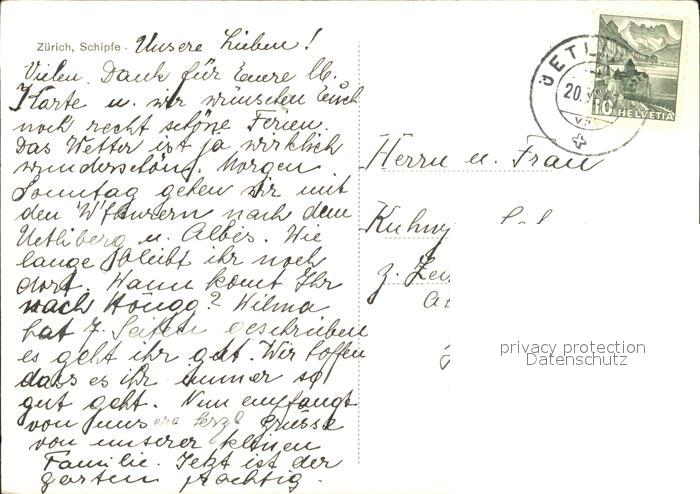 Zürich, Schipfe. Unsere Lieben!
Vielen Dank für Eure lb.
Karte u. wir wünschen Euch
noch recht schöne Ferien.
Das Wetter ist ja wirklich
wunderschön. Morgen
Sonntag gehen wir mit
den W'thurern nach dem
Uetliberg u. Albis. Wie
lange bleibt ihr noch
dort. Wann komt Ihr
nach Höngg? Wilma
hat 7. Seiten geschrieben
es geht ihr gut. Wir hoffen
dass es ihr immer so
gut geht. Nun empfangt
von unsere herzl Grüsse
von unserer kleinen
Familie. Jetzt ist der
garten prächtig.
Herrn u. Frau
Kuhn
z. Zei
UETLI
20.
10
HELVETIA
privacy protection
Datenschutz